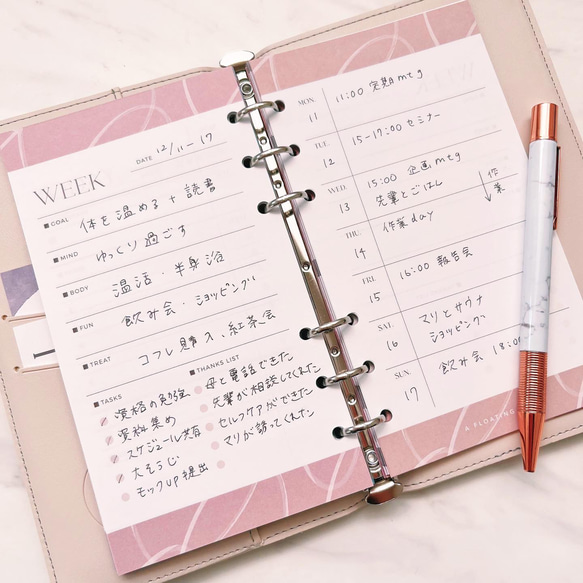 DATE 12/11-17
WEEK
GOAL 体を温める + 読書
MIND ゆっくり過ごす
BODY 温活・半身浴
FUN 飲み会・ショッピング
TREAT コフレ購入、紅茶会
TASKS
資格の勉強
資料集め
スケジュール共有
大そうじ
モックup提出
THANKS LIST
母と電話できた
先輩が相談してくれた
セルフケアができた
マリが誘ってくれた
MON. 11 11:00 定期mtg
TUE. 12 15-17:00 セミナー
WED. 13 15:00 企画mtg
先輩とごはん
作業
THU. 14 作業day
FRI. 15 16:00 報告会
SAT. 16 マリとサウナ
ショッピング
SUN. 17 飲み会 18:00
A FLOATING